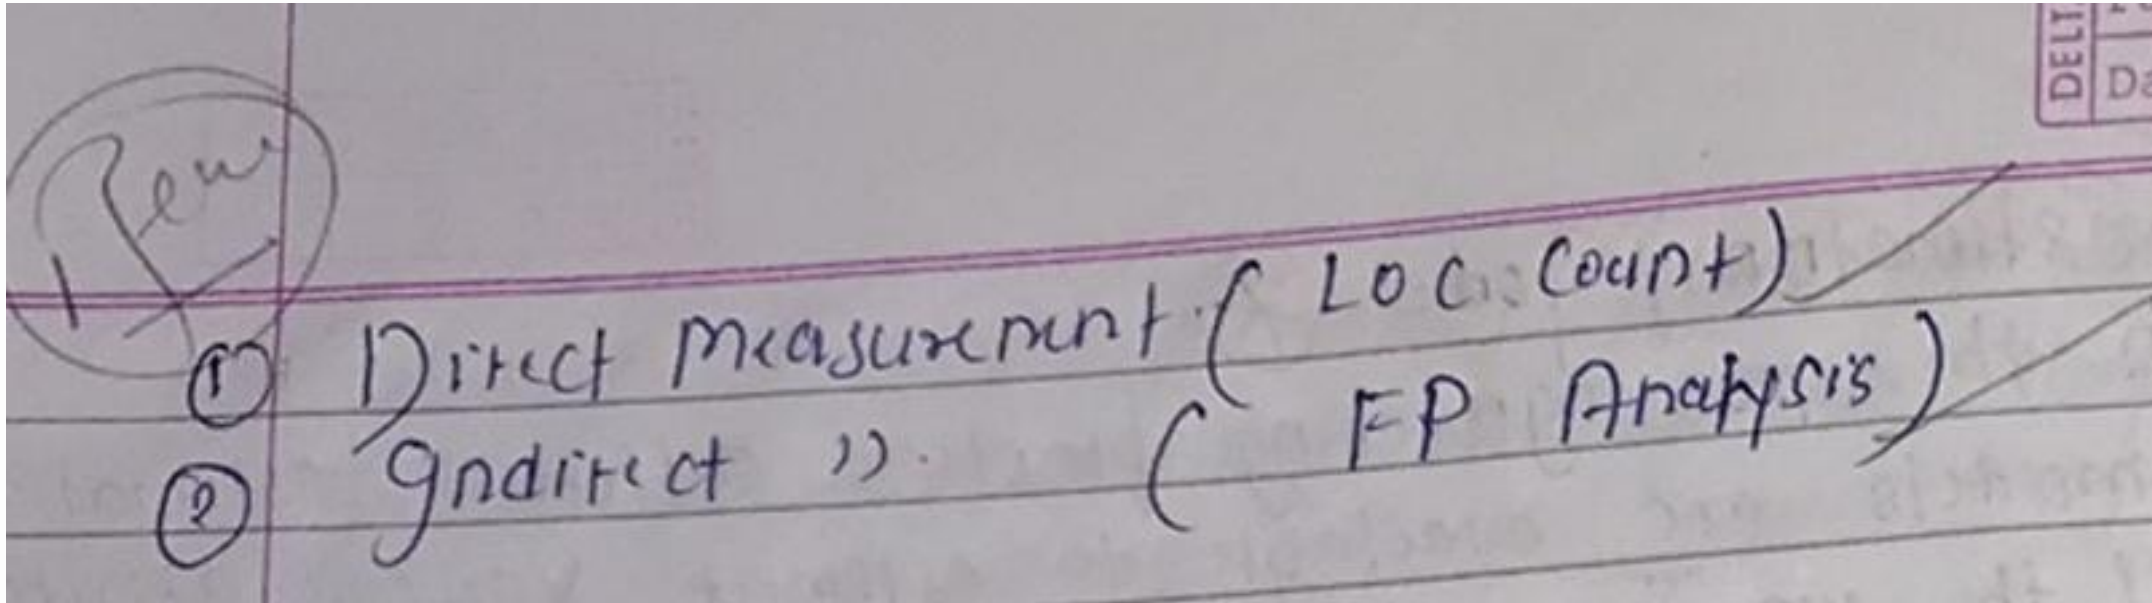 DELT
Da
Rem
① Direct Measurement. (LOC. Count)
② Indirect ". (FP Analysis)